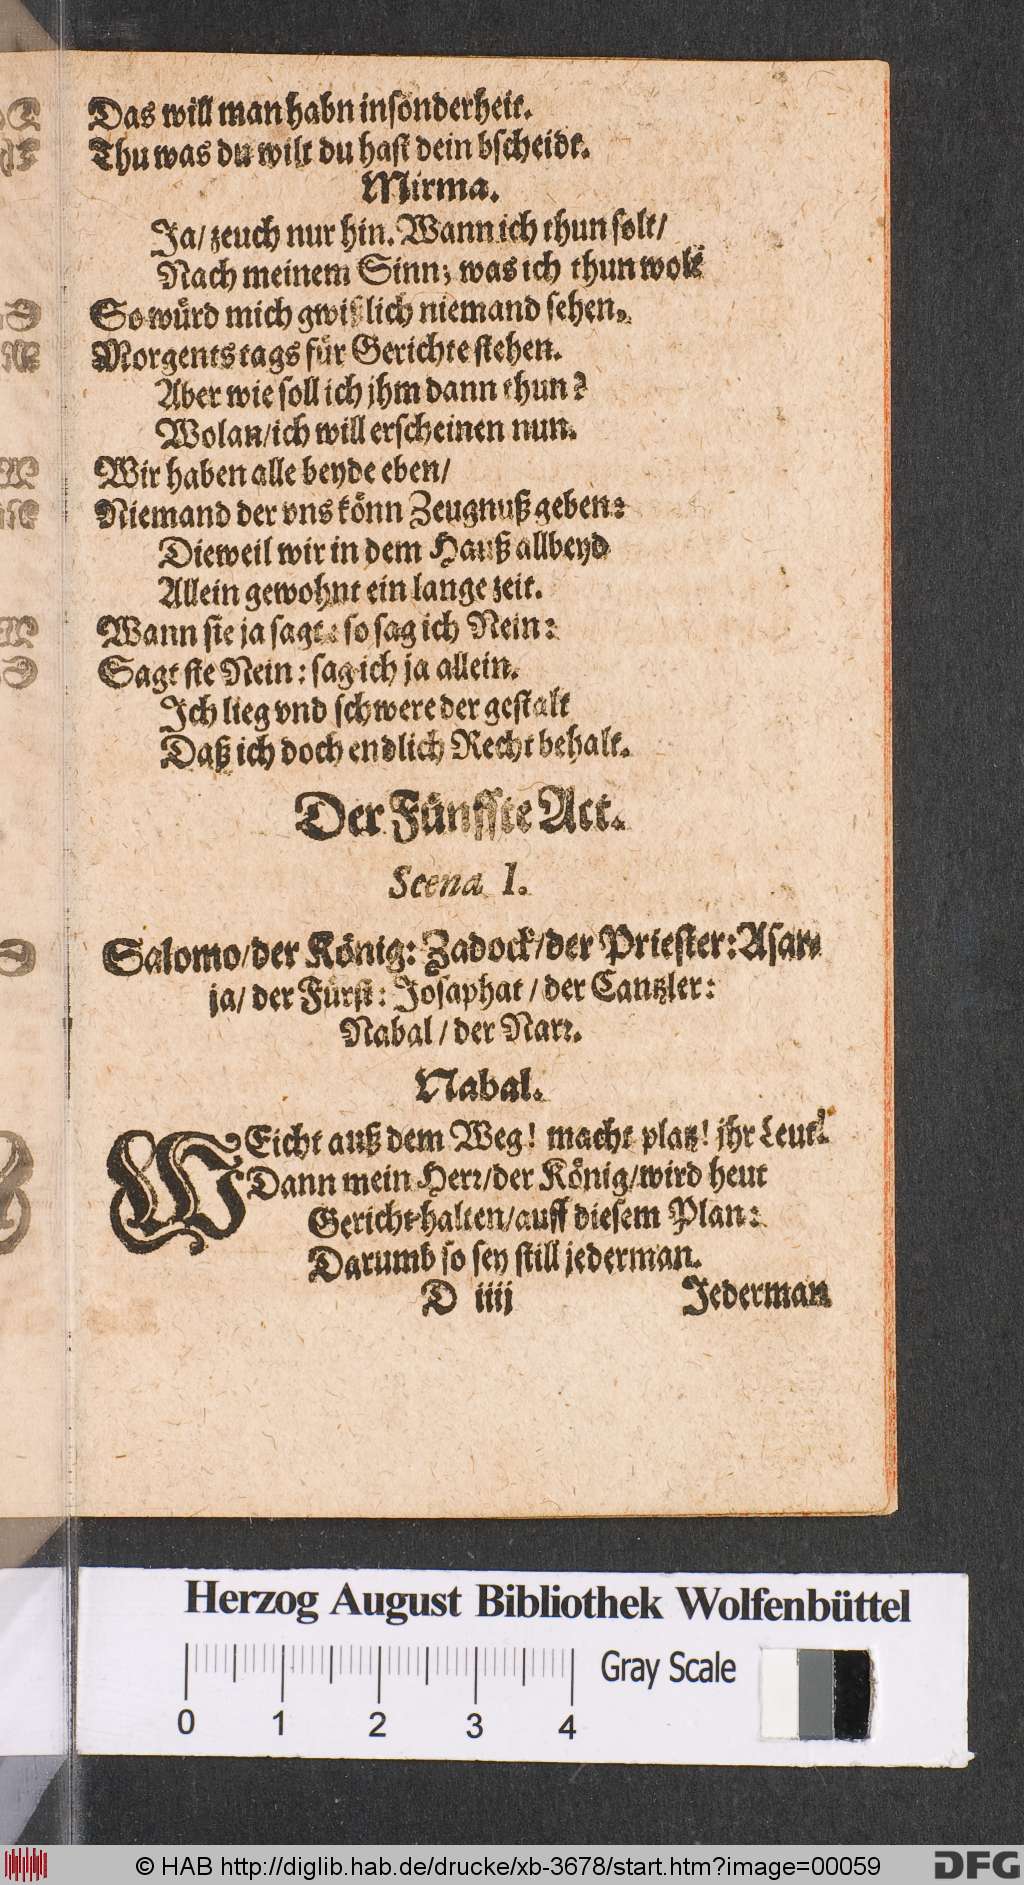 Das will man habn insonderheit.
Thu was du wilt du hast dein bscheidt.
Mirma.
Ja/ zeuch nur hin. Wann ich thun solt/
Nach meinem Sinn; was ich thun wolt
So würd mich gwißlich niemand sehen.
Morgents tags für Gerichte stehen.
Aber wie soll ich jhm dann thun?
Wolan/ich will erscheinen nun.
Wir haben alle beyde eben/
Niemand der vns könn Zeugnuß geben:
Dieweil wir in dem Hauß allbeyd
Allein gewohnt ein lange zeit.
Wann sie ja sagt: so sag ich Nein:
Sagt sie Nein: sag ich ja allein.
Ich lieg vnd schwere der gestalt
Daß ich doch endlich Recht behalt.
Der Fünffte Act.
Scena 1.
Salomo/der König: Zadock/der Priester: Asar-
ja/ der Fürst: Josaphat / der Cantzler:
Nabal / der Narr.
Nabal.
WEicht auß dem Weg! macht platz! jhr Leut!
Dann mein Herr/der König/wird heut
Gericht halten/auff diesem Plan:
Darumb so sey still jederman.
D iiij Jederman
Herzog August Bibliothek Wolfenbüttel
Gray Scale
0 1 2 3 4
© HAB http://diglib.hab.de/drucke/xb-3678/start.htm?image=00059
DFG